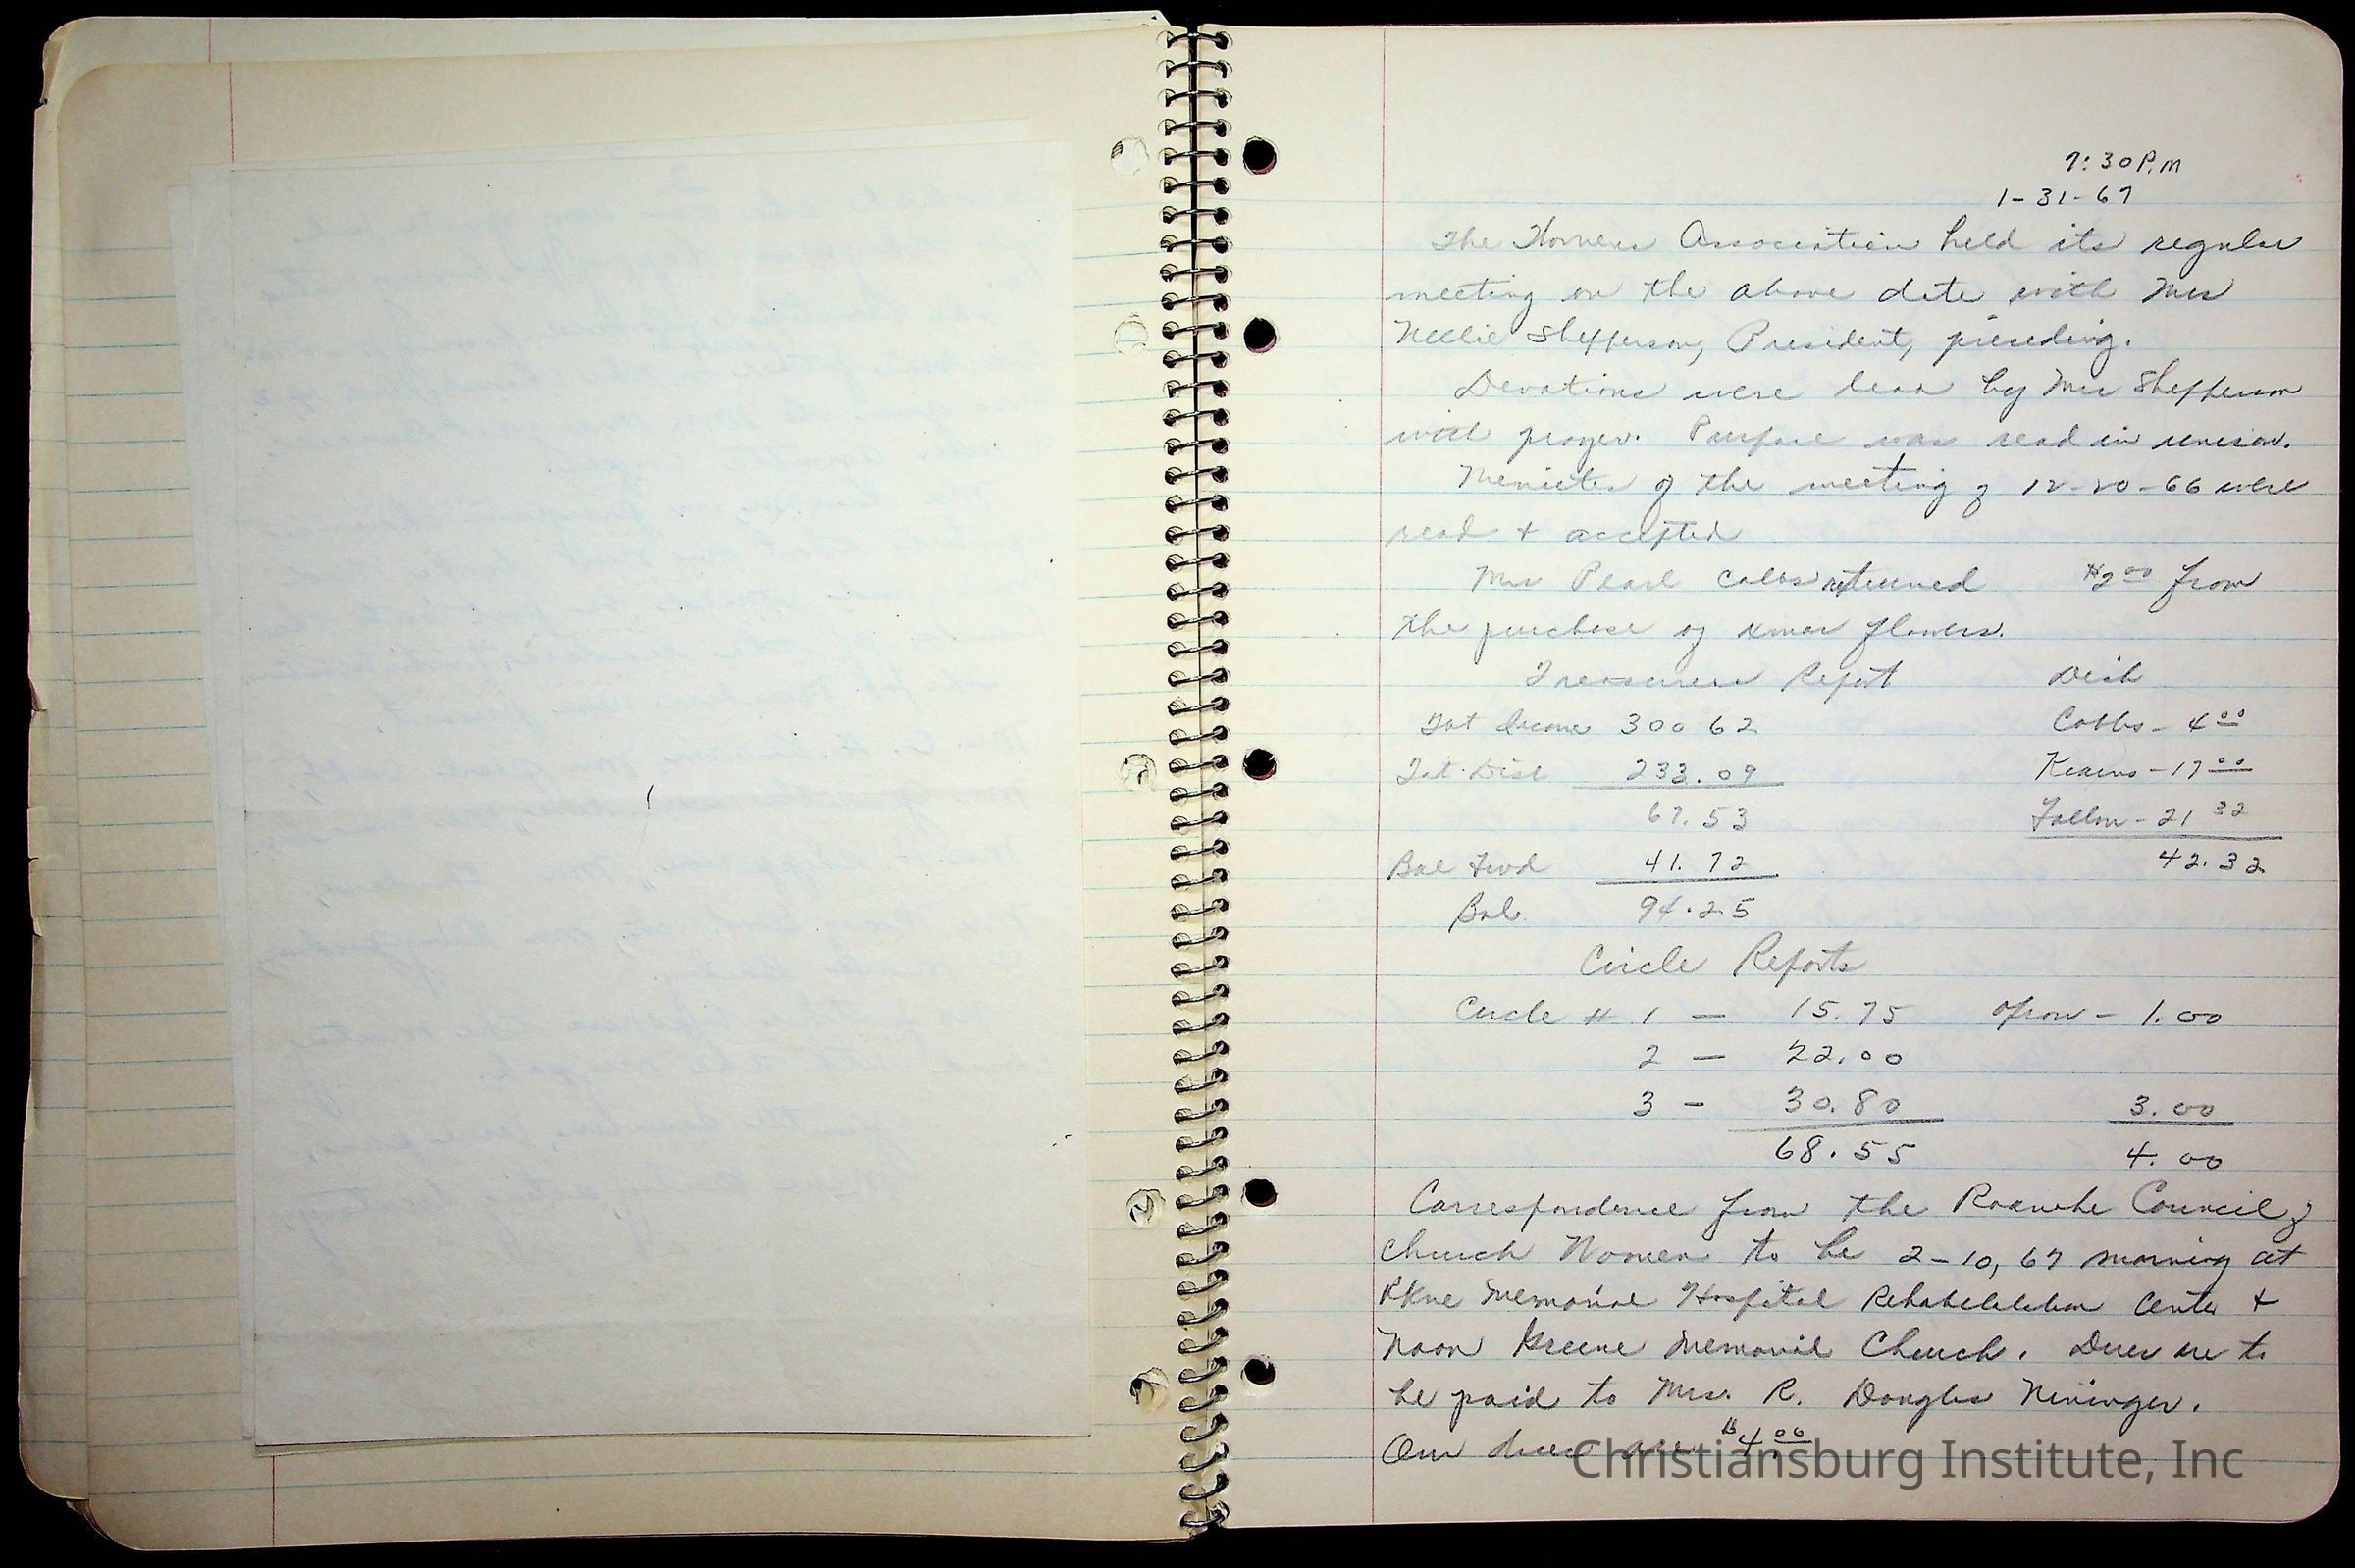 7:30 P.M
1-31-67
The Womens Association held its regular
meeting on the above date with Mrs
Nellie Shefferson, President, presiding.
Devotions were lead by Mrs Shefferson
with prayer. Purpose was read in unison.
Minutes of the meeting of 12-20-66 were
read + accepted
Mrs Pearl Cobbs returned $2.00 from
the purchase of xmas flowers.
Treasurers Report Disb
Tot Income 300 62 Cobbs - 4 00
Tot. Disb 233.09 Kearns - 17 00
67.53 21 32
Bal Fwd 41.72 42.32
Bal. 94.25
Circle Reports
Circle # 1 — 15.75 Apron - 1.00
2 — 22.00
3 - 30.80 3.00
68.55 4.00
Correspondence from the Roanoke Council of
Church Women to be 2-10, 67 morning at
Rkne Memorial Hospital Rehabilitation Center +
Noon Greene Memorial Church. Dues are to
be paid to Mrs. R. Douglas Nininger.
Our dues are $4.00
Christiansburg Institute, Inc